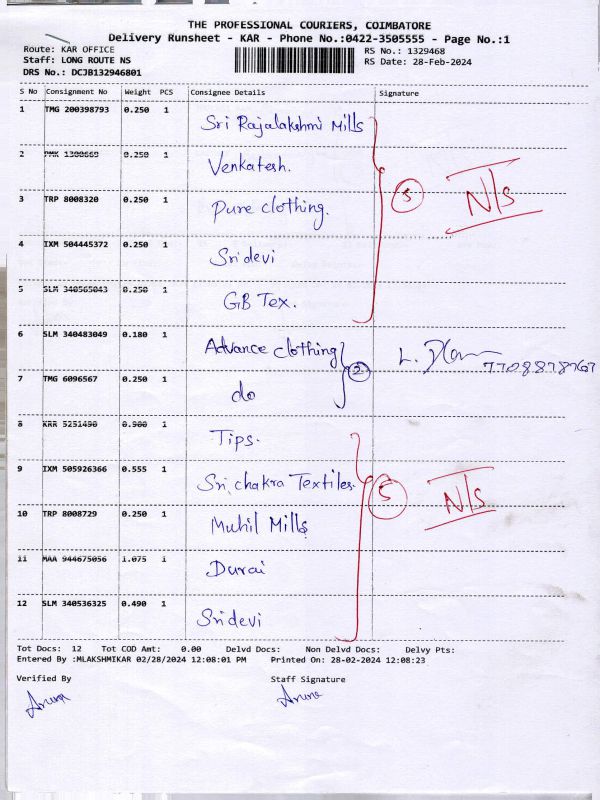 THE PROFESSIONAL COURIERS, COIMBATORE
Delivery Runsheet - KAR - Phone No.:0422-3505555 - Page No.:1
Route: KAR OFFICE
RS No.: 1329468
Staff: LONG ROUTE NS
RS Date: 28-Feb-2024
DRS No.: DCJB132946801
S No Consignment No Weight PCS Consignee Details Signature
1 TMG 200398793 0.250 1 Sri Rajalakshmi Mills
2 PMK 1300669 0.250 1 Venkatesh.
3 TRP 8008320 0.250 1 Pure clothing. 5 N/s
4 IXM 504445372 0.250 1 Sridevi
5 SLM 340565043 0.250 1 GB Tex.
6 SLM 340483049 0.180 1 Advance clothing 2 7708878767
7 TMG 6096567 0.250 1 do
8 KRR 5251490 0.900 1 Tips.
9 IXM 505926366 0.555 1 Sri chakra Textiles. 5 N/s
10 TRP 8008729 0.250 1 Muhil Mills
11 MAA 944675056 1.075 1 Durai
12 SLM 340536325 0.490 1 Sridevi
Tot Docs: 12 Tot COD Amt: 0.00 Delvd Docs: Non Delvd Docs: Delvy Pts:
Entered By :MLAKSHMIKAR 02/28/2024 12:08:01 PM Printed On: 28-02-2024 12:08:23
Verified By Staff Signature